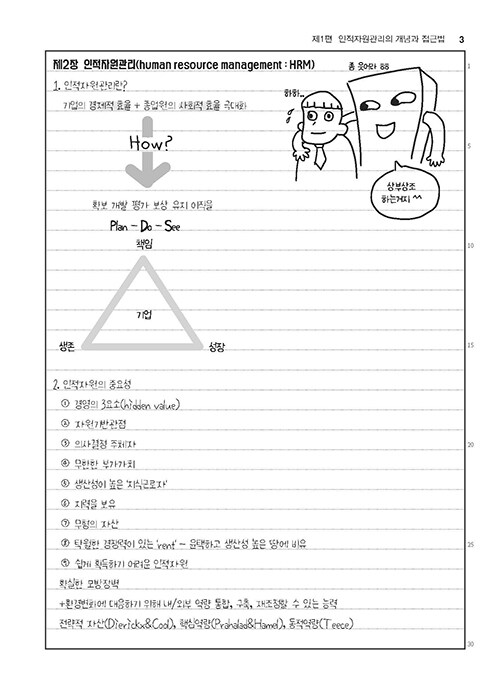 제1편 인적자원관리의 개념과 접근법 3
제2장 인적자원관리(human resource management : HRM)
1. 인적자원관리란?
기업의 경제적 효율 + 종업원의 사회적 효율 극대화
How?
확보 개발 평가 보상 유지 이직을
Plan - Do - See
책임
기업
생존
성장
좀 웃어라 ㅎㅎ
하하..
상부상조
하는거지 ^^
2. 인적자원의 중요성
① 경영의 3요소(hidden value)
② 자원기반관점
③ 의사결정 주체자
④ 무한한 부가가치
⑤ 생산성이 높은 '지식근로자'
⑥ 지력을 보유
⑦ 무형의 자산
⑧ 탁월한 경쟁력이 있는 'rent' - 윤택하고 생산성 높은 땅에 비유
⑨ 쉽게 획득하기 어려운 인적자원
확실한 모방장벽
+환경변화에 대응하기 위해 내/외부 역량 통합, 구축, 재조정할 수 있는 능력
전략적 자산(Dierickx&Cool), 핵심역량(Prahalad&Hamel), 동적역량(Teece)
1
5
10
15
20
25
30